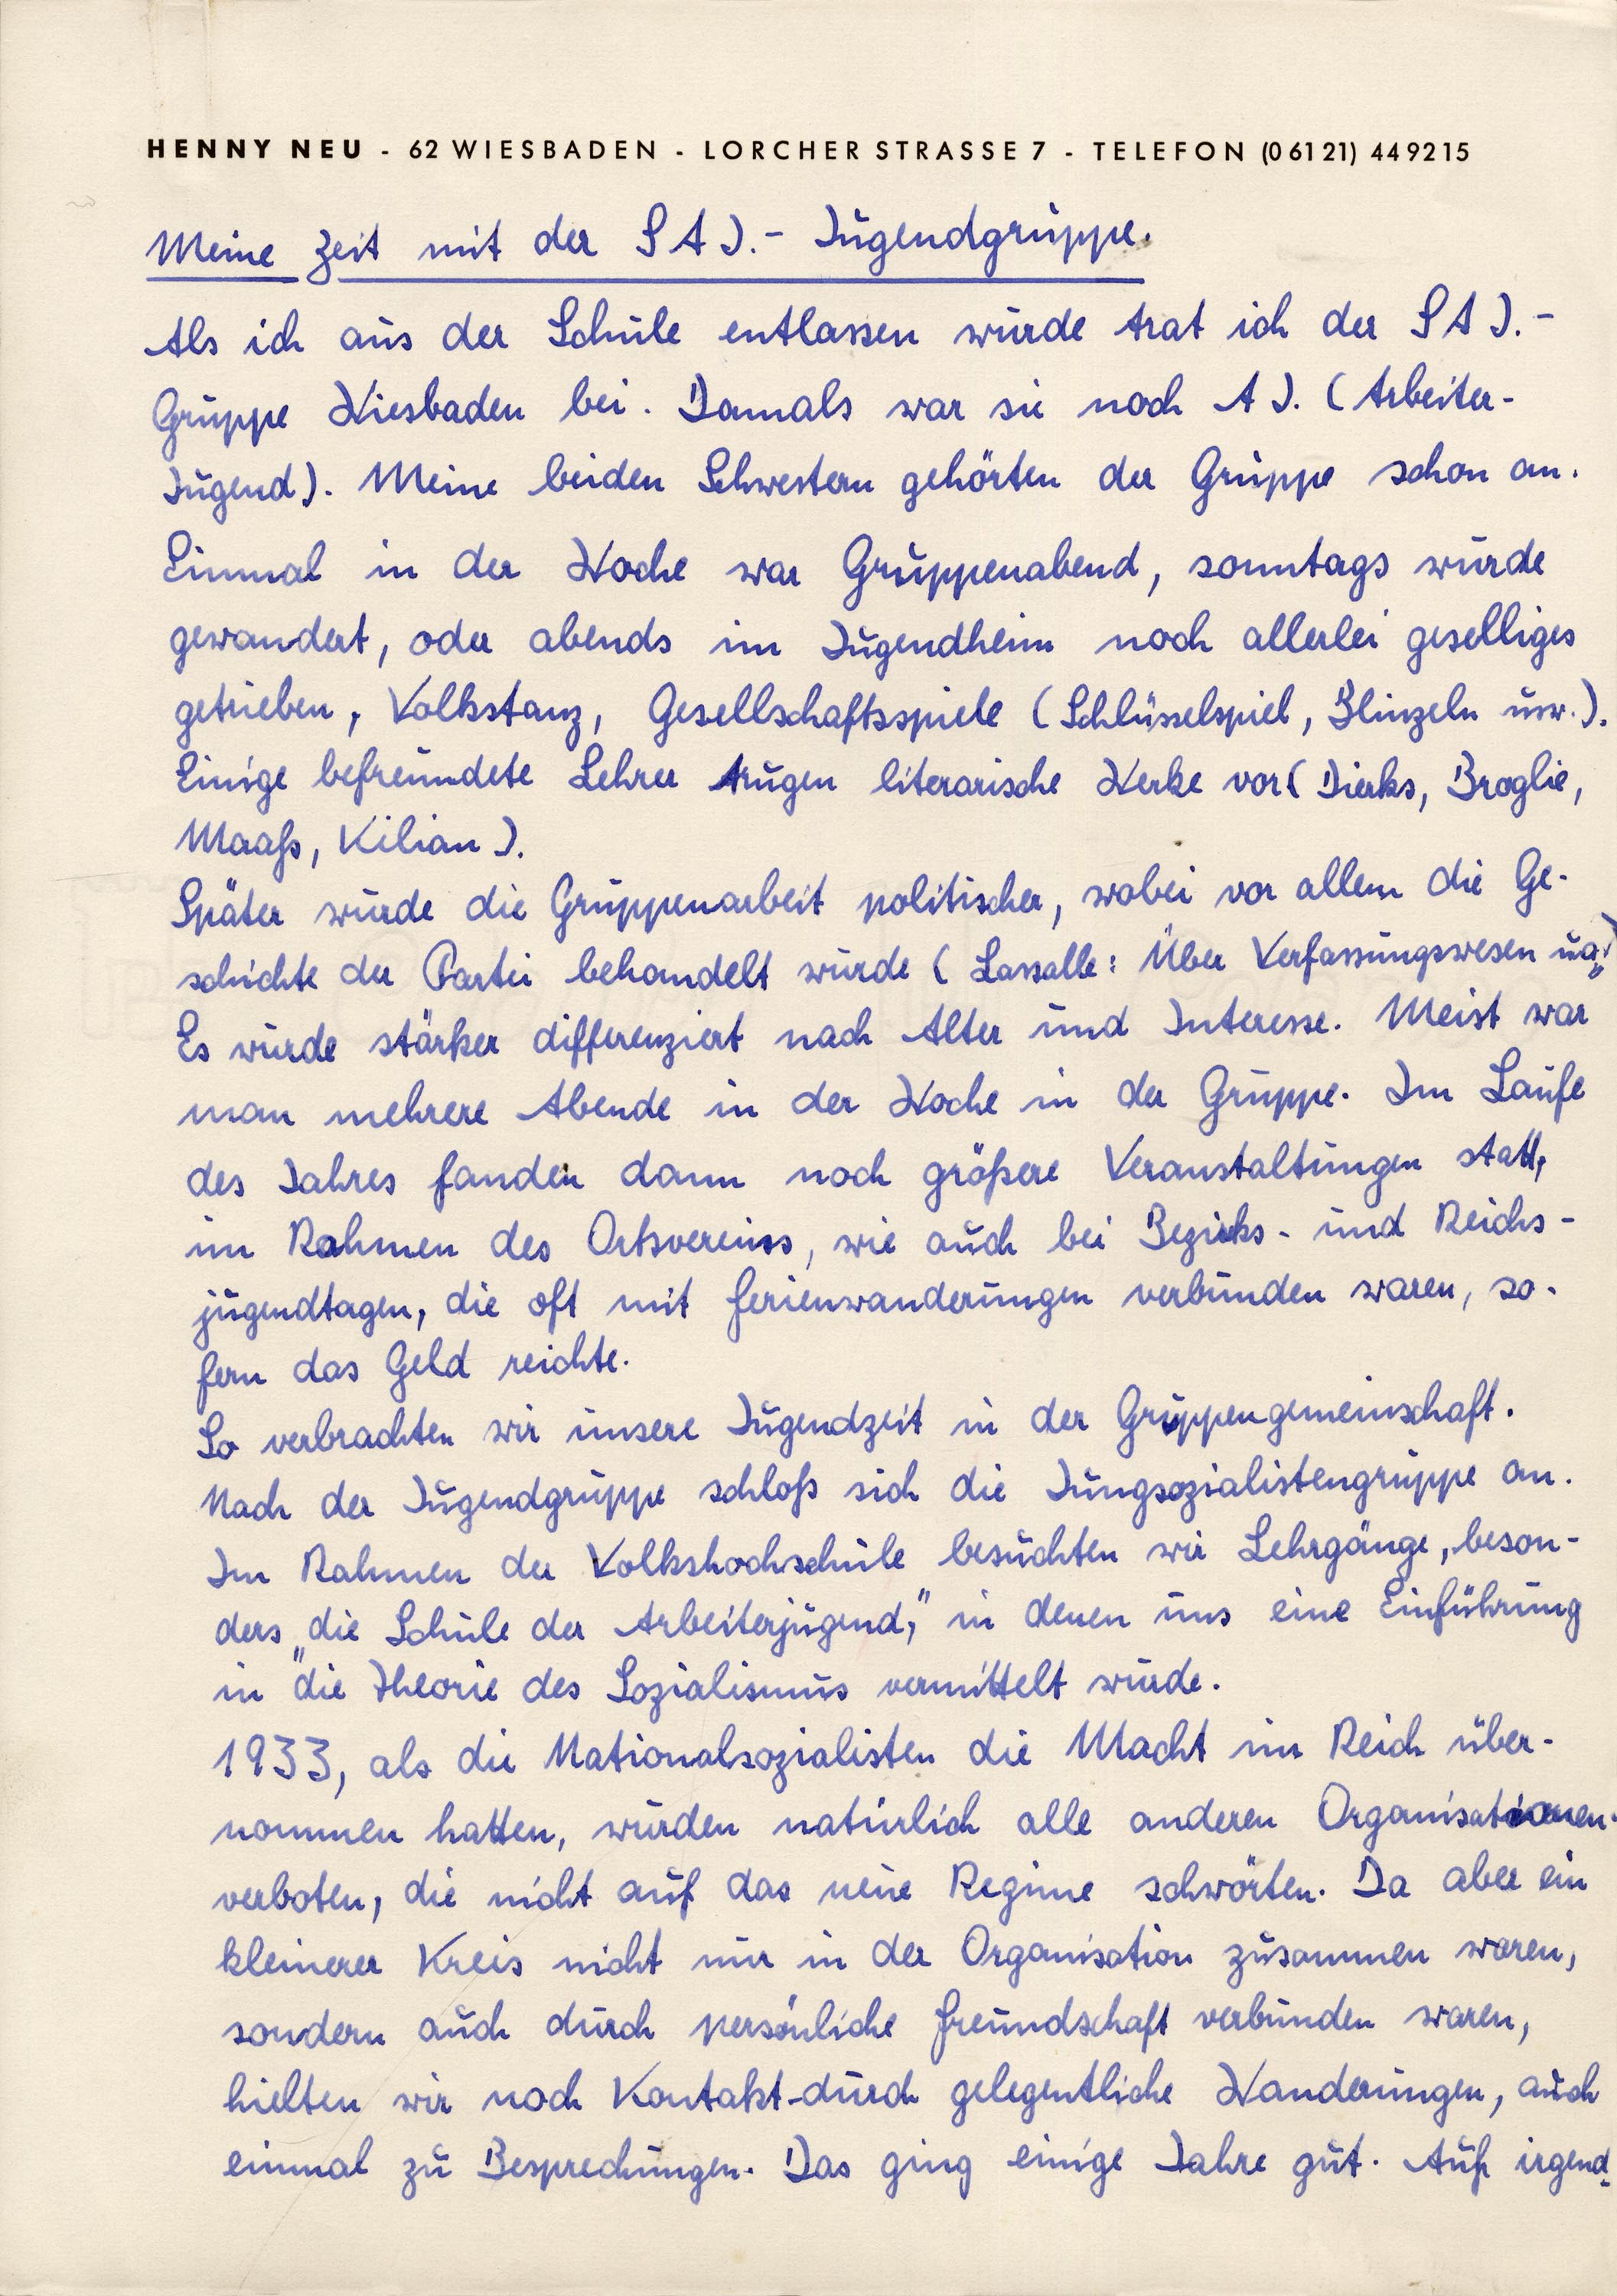 HENNY NEU - 62 WIESBADEN - LORCHER STRASSE 7 - TELEFON (06121) 449215
Meine Zeit mit der SAJ.- Jugendgruppe.
Als ich aus der Schule entlassen wurde trat ich der SAJ.-
Gruppe Wiesbaden bei. Damals war sie noch AJ. (Arbeiter-
Jugend). Meine beiden Schwestern gehörten der Gruppe schon an.
Einmal in der Woche war Gruppenabend, sonntags wurde
gewandert, oder abends im Jugendheim noch allerlei geselliges
getrieben, Volkstanz, Gesellschaftsspiele (Schlüsselspiel, Blinzeln usw.).
Einige befreundete Lehrer trugen literarische Werke vor (Dierks, Broglie,
Maaß, Kilian).
Später wurde die Gruppenarbeit politischer, wobei vor allem die Ge-
schichte der Partei behandelt wurde (Lassalle: Über Verfassungswesen ua.)
Es wurde stärker differenziert nach Alter und Interesse. Meist war
man mehrere Abende in der Woche in der Gruppe. Im Laufe
des Jahres fanden dann noch größere Veranstaltungen statt,
im Rahmen des Ortsvereins, wie auch bei Bezirks- und Reichs-
jugendtagen, die oft mit Ferienwanderungen verbunden waren, so-
fern das Geld reichte.
So verbrachten wir unsere Jugendzeit in der Gruppengemeinschaft.
Nach der Jugendgruppe schloß sich die Jungsozialistengruppe an.
Im Rahmen der Volkshochschule besuchten wir Lehrgänge, beson-
ders „die Schule der Arbeiterjugend," in denen uns eine Einführung
in die Theorie des Sozialismus vermittelt wurde.
1933, als die Nationalsozialisten die Macht im Reich über-
nommen hatten, wurden natürlich alle anderen Organisationen
verboten, die nicht auf das neue Regime schwörten. Da aber ein
kleinerer Kreis nicht nur in der Organisation zusammen waren,
sondern auch durch persönliche Freundschaft verbunden waren,
hielten wir noch Kontakt durch gelegentliche Wanderungen, auch
einmal zu Besprechungen. Das ging einige Jahre gut. Auf irgend-